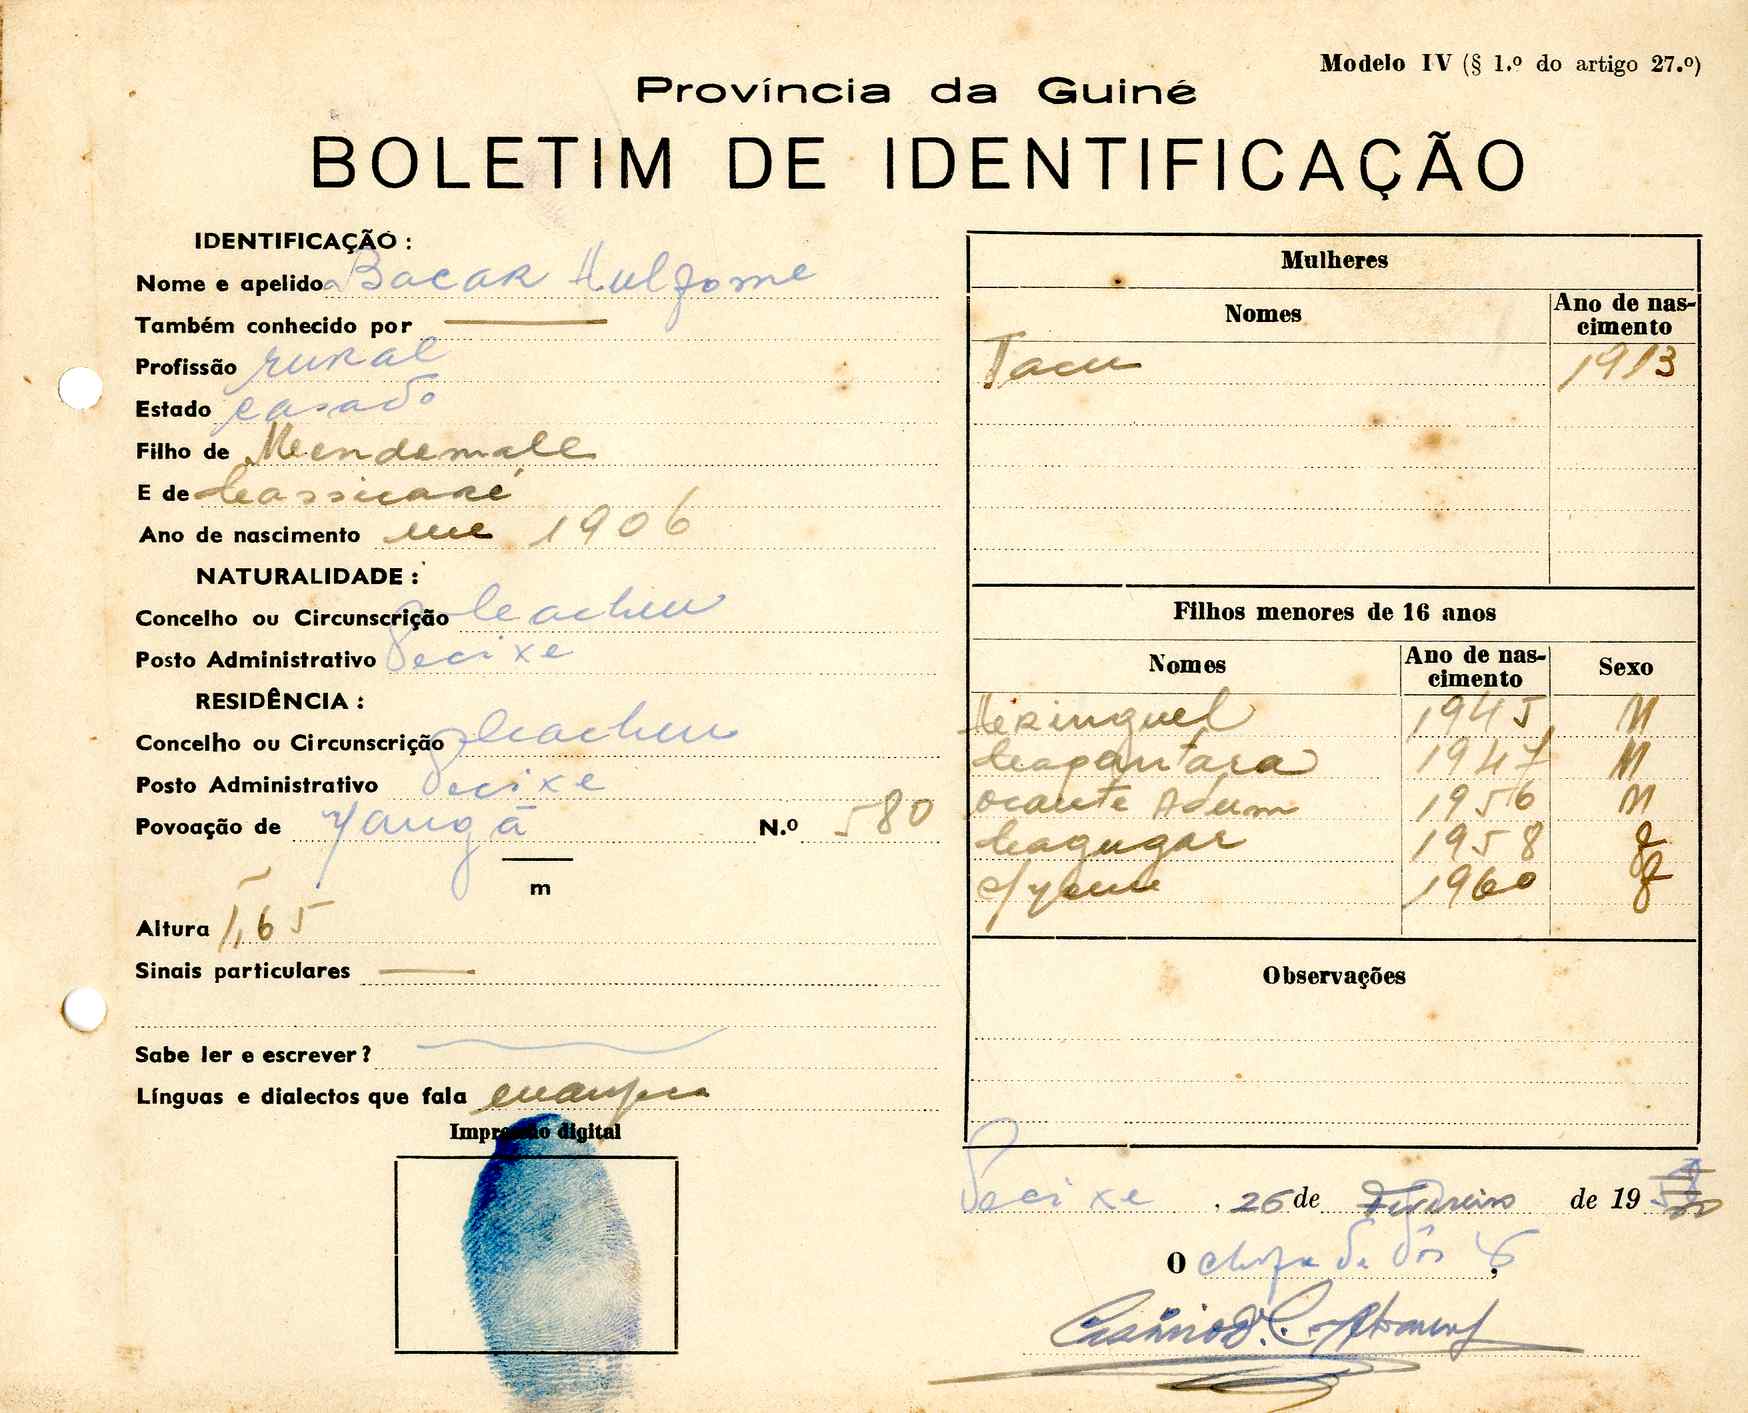 Modelo IV (§ 1.º do artigo 27.º)
Província da Guiné
BOLETIM DE IDENTIFICAÇÃO
IDENTIFICAÇÃO :
Nome e apelido Bacar
Também conhecido por
Profissão rural
Estado casado
Filho de
E de
Ano de nascimento 1906
NATURALIDADE :
Concelho ou Circunscrição Cacheu
Posto Administrativo Pecixe
RESIDÊNCIA :
Concelho ou Circunscrição Cacheu
Posto Administrativo Pecixe
Povoação de N.º 580
m
Altura 1,65
Sinais particulares
Sabe ler e escrever ?
Línguas e dialectos que fala
Impressão digital
Mulheres
Nomes Ano de nas-
cimento
1913
Filhos menores de 16 anos
Nomes Ano de nas-
cimento Sexo
1945 M
1947 M
Adum 1956 M
1958 f
1960 f
Observações
Pecixe, 26 de Fevereiro de 19
O chefe de